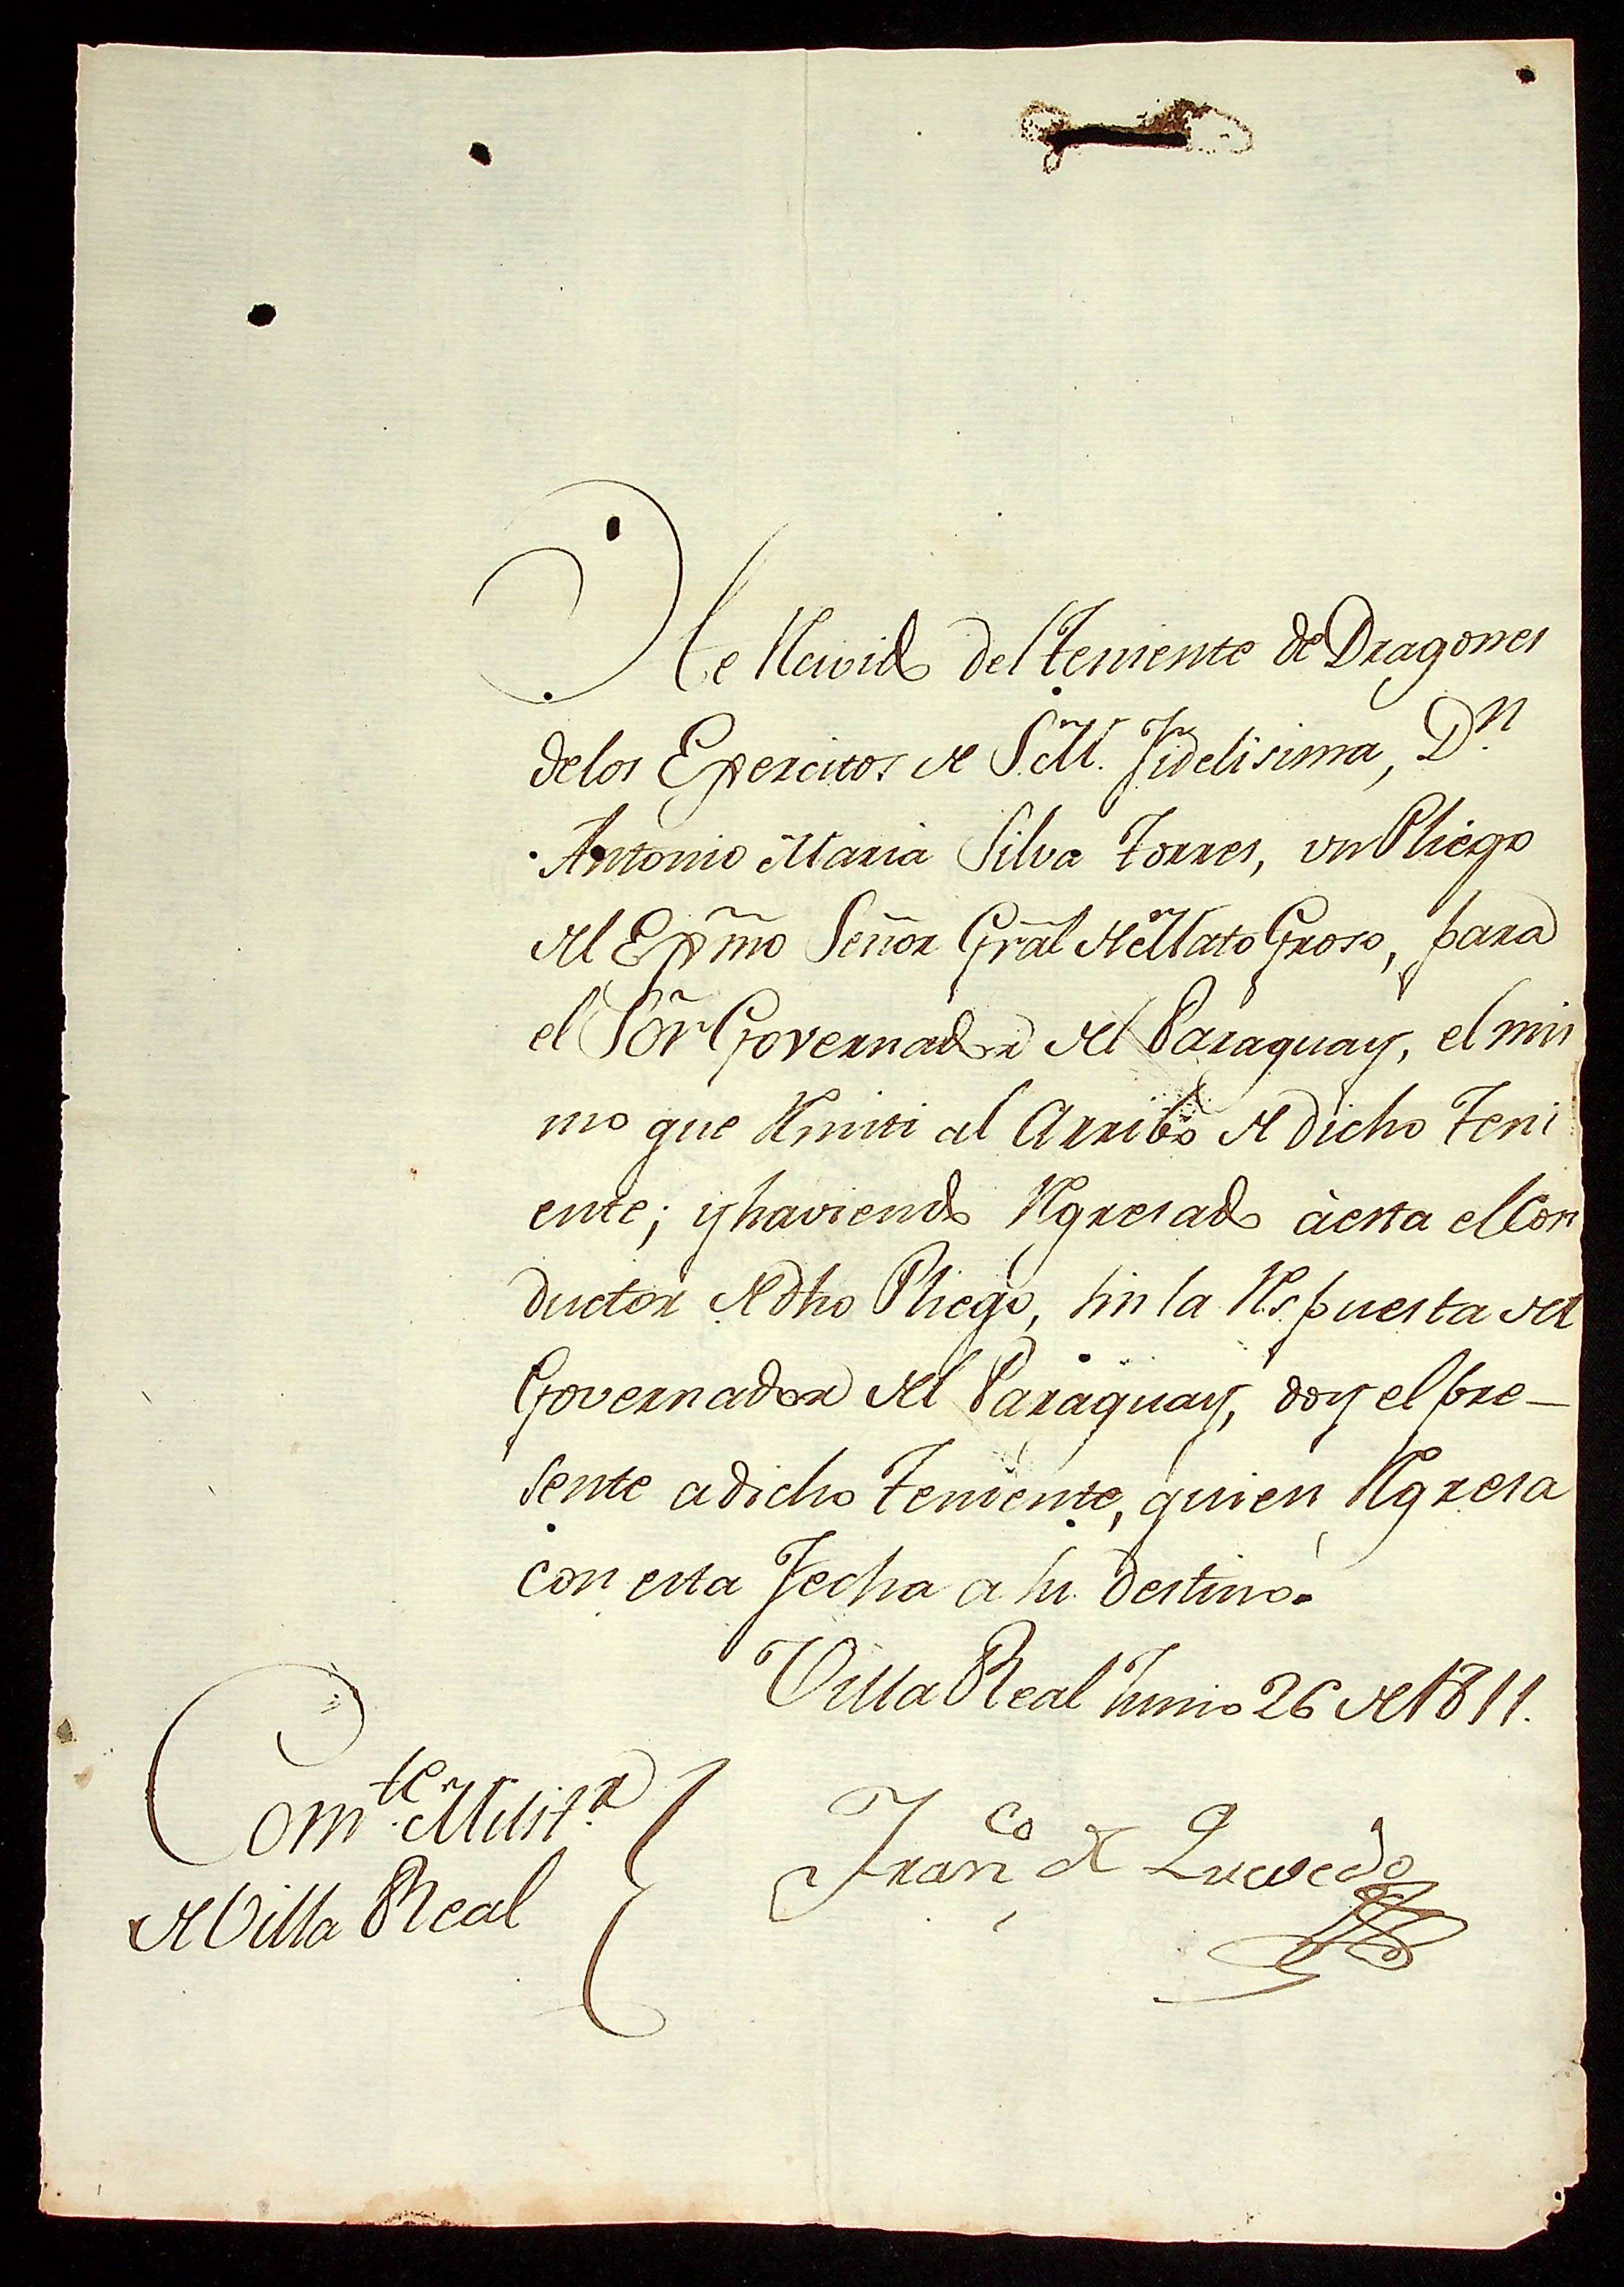 He Recivido del Teniente de Dragones
delos Exercitos de S.M. Fidelisima, Dn.
Antonio Maria Silva Torres, vn Pliego
del Exmõ Señor Grãl de Mato Groso, para
el Sõr Governador del Paraguay, el mis
mo que Remiti al Arribo de dicho Teni
ente; y haviendo Regresado àesta el Con
ductor de dho Pliego, sin la Respuesta del
Governador del Paraguay, doy el pre-
sente a dicho Teniente, quien Regresa
con esta Fecha a su destino.
Villa Real Junio 26 de 1811.
Comte. Milit.r
de Villa Real
Franco de Quevedo